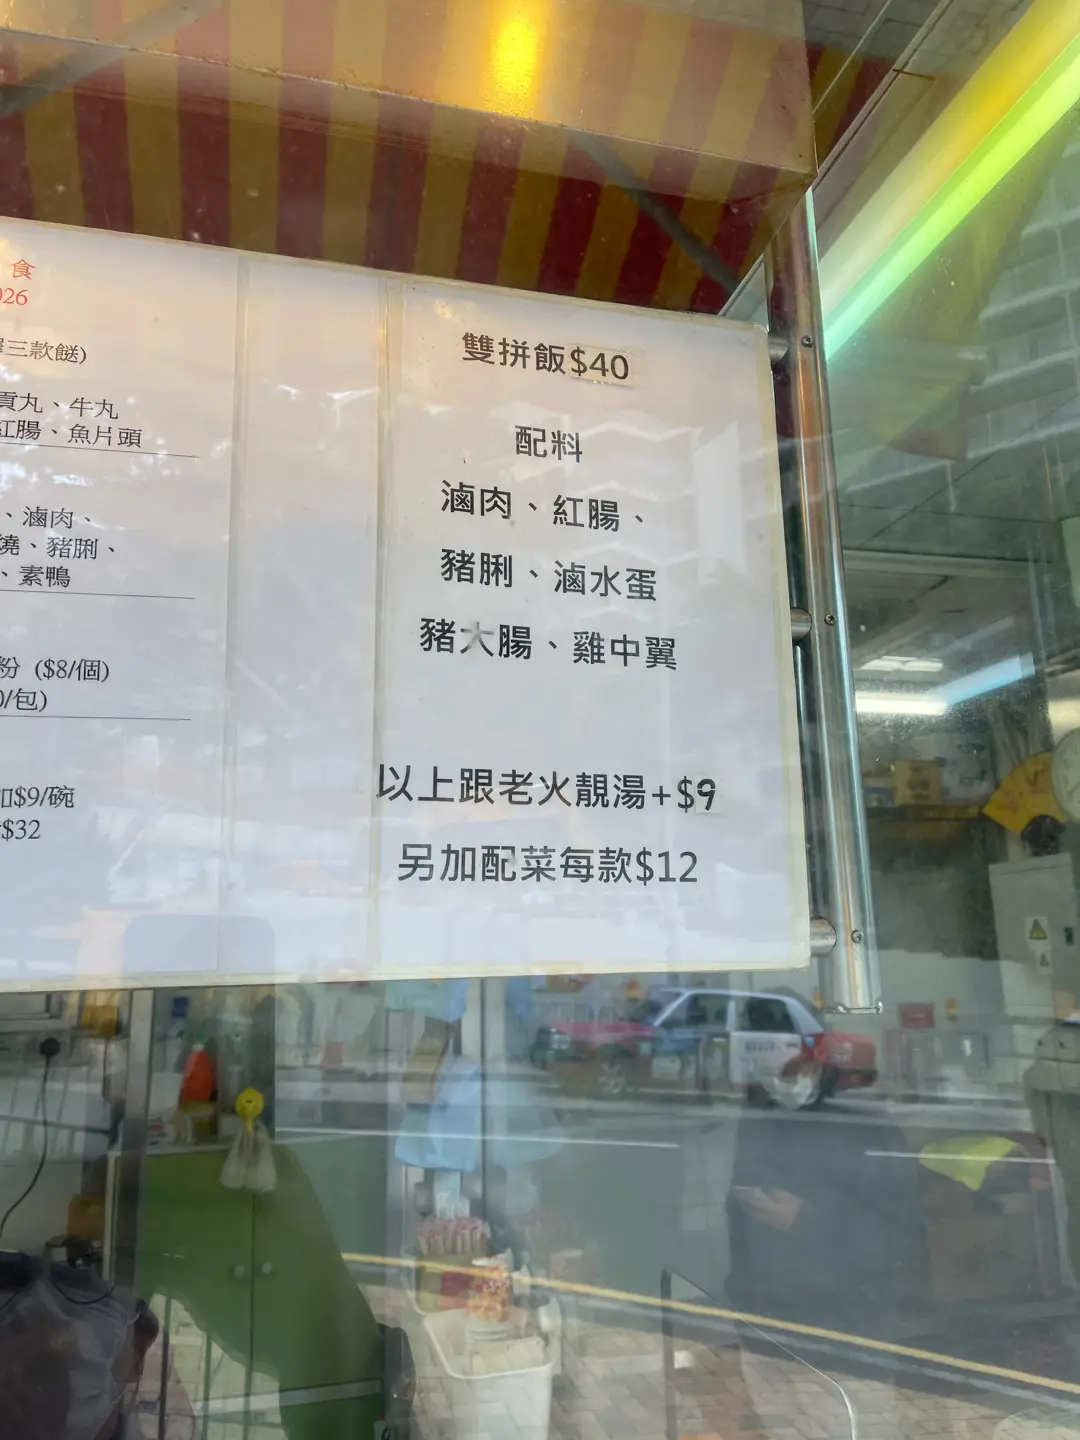 食
026
三款餸)
貢丸、牛丸
紅腸、魚片頭
、滷肉、
燒、豬脷、
、素鴨
粉 ($8/個)
0/包)
加$9/碗
$32
雙拼飯$40
配料
滷肉、紅腸、
豬脷、滷水蛋
豬大腸、雞中翼
以上跟老火靚湯+$9
另加配菜每款$12